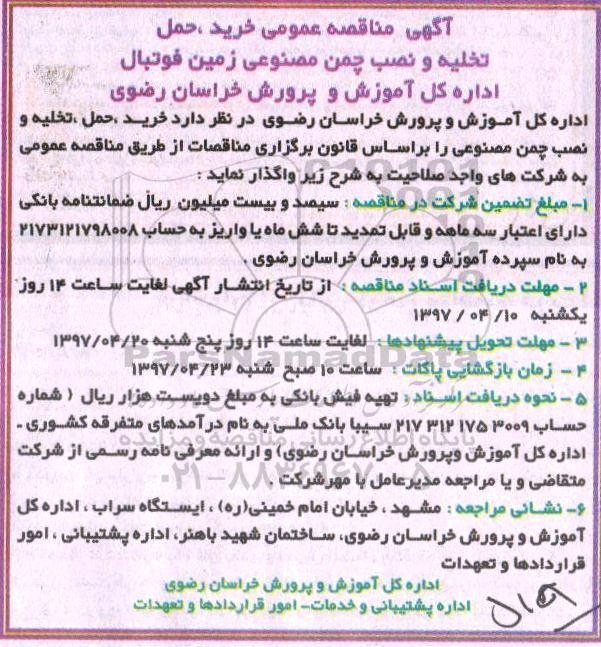 آگهی مناقصه عمومی خرید ،حمل
تخلیه و نصب چمن مصنوعی زمین فوتبال
اداره کل آموزش و پرورش خراسان رضوی
اداره کل آموزش و پرورش خراسان رضوی در نظر دارد خرید ،حمل ،تخلیه و
نصب چمن مصنوعی را براساس قانون برگزاری مناقصات از طریق مناقصه عمومی
به شرکت های واجد صلاحیت به شرح زیر واگذار نماید :
۱- مبلغ تضمین شرکت در مناقصه : سیصد و بیست میلیون ریال ضمانتنامه بانکی
دارای اعتبار سه ماهه و قابل تمدید تا شش ماه یا واریز به حساب ۲۱۷۳۱۲۱۷۹۸۰۰۸
به نام سپرده آموزش و پرورش خراسان رضوی .
۲ - مهلت دریافت اسناد مناقصه : از تاریخ انتشار آگهی لغایت ساعت ۱۴ روز
یکشنبه ۱۰/ ۰۴ / ۱۳۹۷
۳ - مهلت تحویل پیشنهادها : لغایت ساعت ۱۴ روز پنج شنبه ۱۳۹۷/۰۴/۲۰
۴ - زمان بازگشایی پاکات : ساعت ۱۰ صبح شنبه ۱۳۹۷/۰۴/۲۳
۵ - نحوه دریافت اسناد : تهیه فیش بانکی به مبلغ دویست هزار ریال ( شماره
حساب ۳۰۰۹ ۱۷۵ ۳۱۲ ۲۱۷ سیبا بانک ملی به نام درآمدهای متفرقه کشوری -
اداره کل آموزش وپرورش خراسان رضوی) و ارائه معرفی نامه رسمی از شرکت
متقاضی و یا مراجعه مدیرعامل با مهرشرکت .
۶- نشانی مراجعه : مشهد ، خیابان امام خمینی(ره) ، ایستگاه سراب ، اداره کل
آموزش و پرورش خراسان رضوی، ساختمان شهید باهنر، اداره پشتیبانی ، امور
قراردادها و تعهدات
اداره کل آموزش و پرورش خراسان رضوی
اداره پشتیبانی و خدمات- امور قراردادها و تعهدات
ParsNamadData
پایگاه اطلاع رسانی مناقصه و مزایده
۰۲۱-۸۸۳۴۹۶۷۰-۵